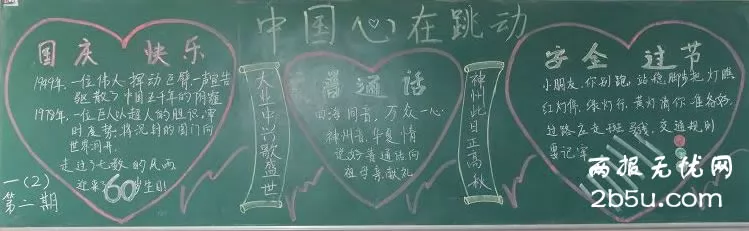 中国心在跳动
国庆 快乐
1949年,一位伟人挥动巨臂,一声宣告
驱散了中国五千年的阴霾
1978年,一位巨人以超人的胆识,审
时度势,将沉封的国门向
世界洞开.
走过了七数的风雨,
迎来60岁生日!
一(2)
第二期
大业中兴歌盛世
普通话
四海同音,万众一心
神州音,华夏情
说好普通话向
祖母亲献礼
神州此日正高秋
安全 过节
小朋友,你别跑,站稳脚步把灯瞧
红灯停,绿灯行,黄灯请你准备好
过路应走斑马线,交通规则
要记牢
两报无忧网
2b5u.com